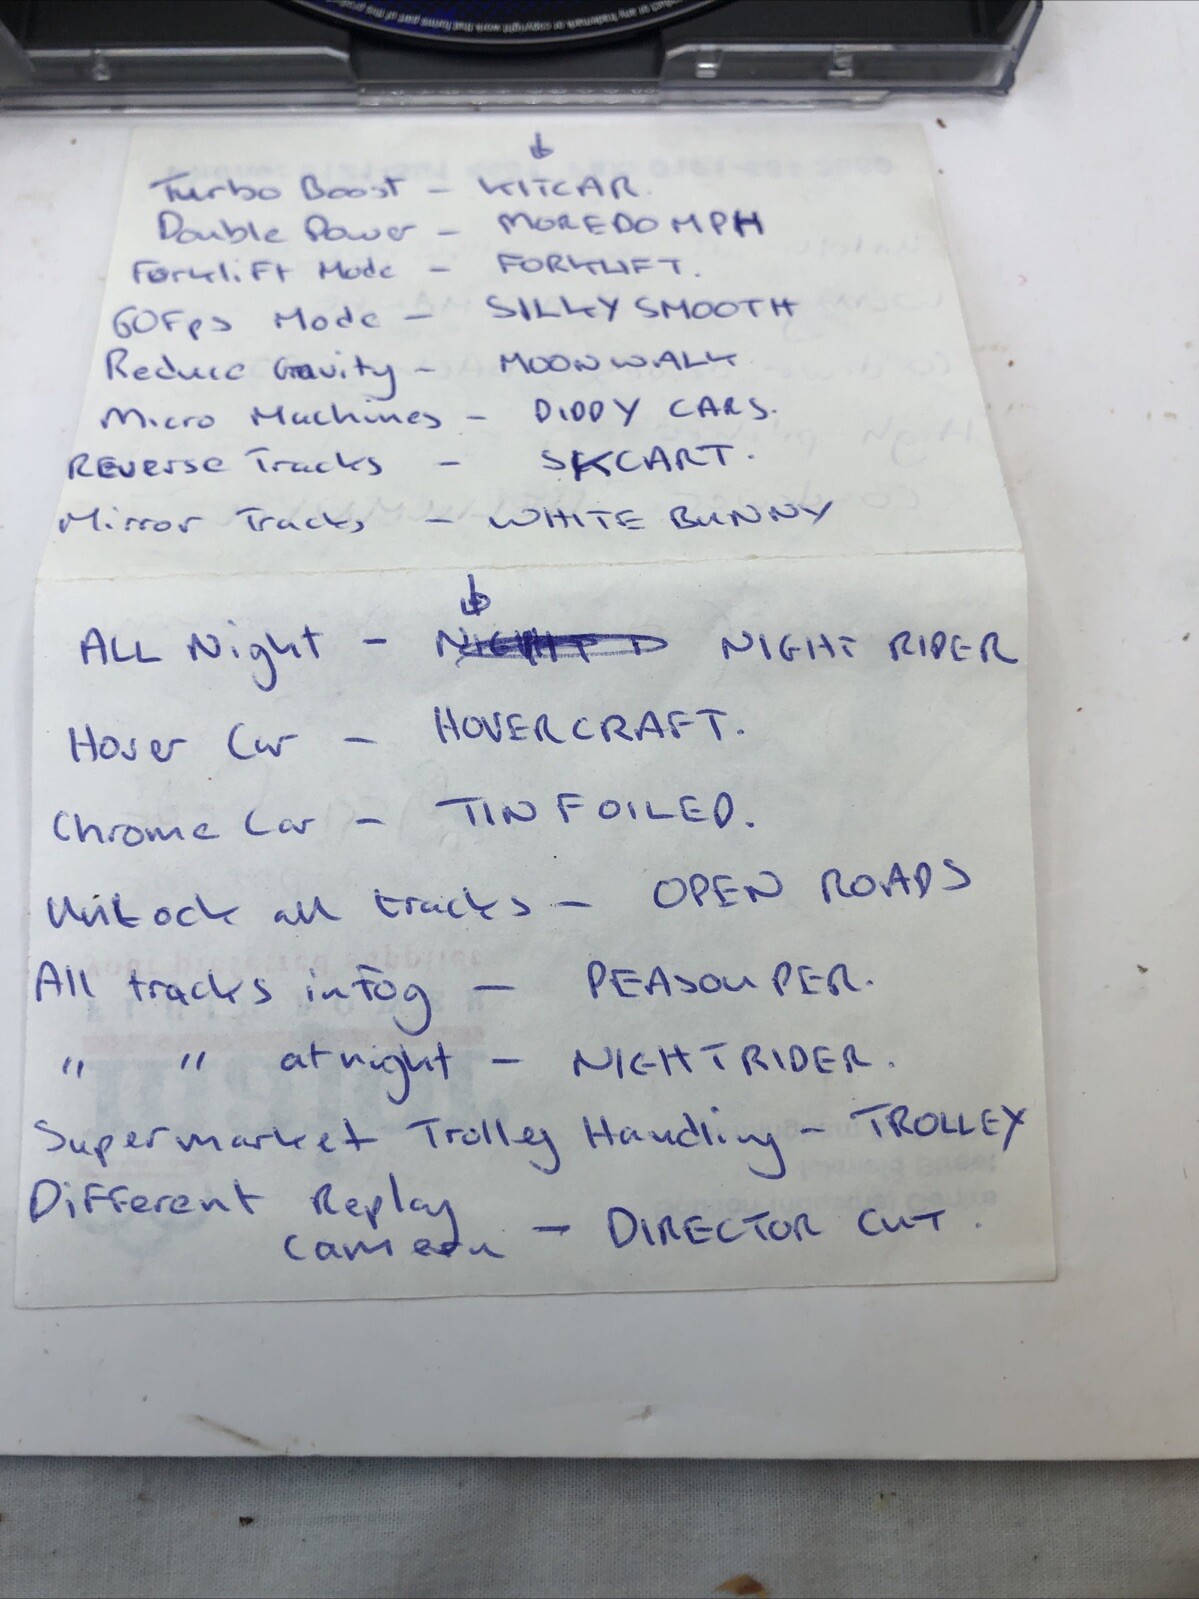 product or any trademark or copyright work that forms part of this product
Turbo Boost - KITCAR.
Double Power - MOREDOMPH
Forklift Mode - FORKLIFT.
60Fps Mode - SILKYSMOOTH
Reduce Gravity - MOONWALK
Micro Machines - DIDDY CARS.
REverse Tracks - SKCART.
Mirror Tracks - WHITE BUNNY
ALL Night - NIGHT RIDER
Hover Car - HOVERCRAFT.
Chrome Car - TIN FOILED.
Unlock all tracks - OPEN ROADS
All tracks in Fog - PEASOUPER.
" " at night - NIGHTRIDER.
Supermarket Trolley Handling - TROLLEY
Different Replay
camera - DIRECTOR CUT.